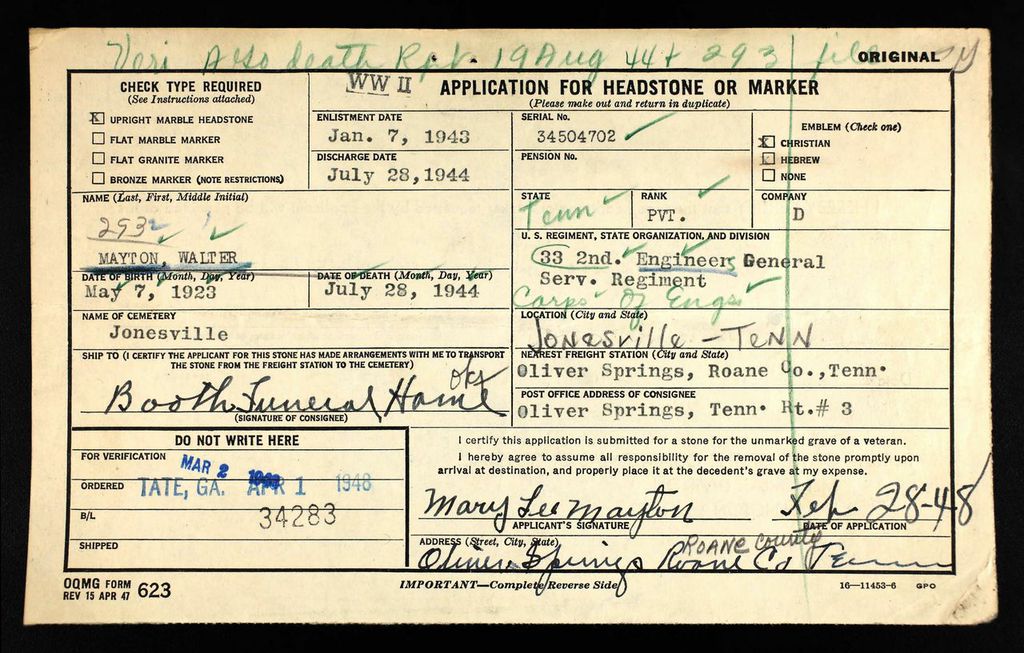 Veri Also death Rpt. 19 Aug 44 + 293 file
ORIGINAL
CHECK TYPE REQUIRED
(See Instructions attached)
X UPRIGHT MARBLE HEADSTONE
FLAT MARBLE MARKER
FLAT GRANITE MARKER
BRONZE MARKER (NOTE RESTRICTIONS)
WW II
APPLICATION FOR HEADSTONE OR MARKER
(Please make out and return in duplicate)
ENLISTMENT DATE
Jan. 7, 1943
DISCHARGE DATE
July 28,1944
SERIAL No.
34504702
PENSION No.
EMBLEM (Check one)
X CHRISTIAN
HEBREW
NONE
STATE
Tenn
RANK
PVT.
COMPANY
D
NAME (Last, First, Middle Initial)
293
MAYTON, WALTER
U. S. REGIMENT, STATE ORGANIZATION, AND DIVISION
33 2nd. Engineers General
Serv. Regiment
Corps Of Engs
DATE OF BIRTH (Month, Day, Year)
May 7, 1923
DATE OF DEATH (Month, Day, Year)
July 28, 1944
NAME OF CEMETERY
Jonesville
LOCATION (City and State)
Jonesville - TENN
SHIP TO (I CERTIFY THE APPLICANT FOR THIS STONE HAS MADE ARRANGEMENTS WITH ME TO TRANSPORT
THE STONE FROM THE FREIGHT STATION TO THE CEMETERY)
Booth Funeral Home
(SIGNATURE OF CONSIGNEE)
NEAREST FREIGHT STATION (City and State)
Oliver Springs, Roane Co.,Tenn.
POST OFFICE ADDRESS OF CONSIGNEE
Oliver Springs, Tenn. Rt.# 3
DO NOT WRITE HERE
FOR VERIFICATION
MAR 2
ORDERED
TATE, GA. APR 1 1948
B/L
34283
SHIPPED
I certify this application is submitted for a stone for the unmarked grave of a veteran.
I hereby agree to assume all responsibility for the removal of the stone promptly upon
arrival at destination, and properly place it at the decedent's grave at my expense.
Mary Lee Mayton
Feb 28-48
APPLICANT'S SIGNATURE
DATE OF APPLICATION
ADDRESS (Street, City, State)
ROANE County
Oliver Springs Roane Co Tenn
OQMG FORM 623
REV 15 APR 47
IMPORTANT—Complete Reverse Side
16—11453-6 GPO